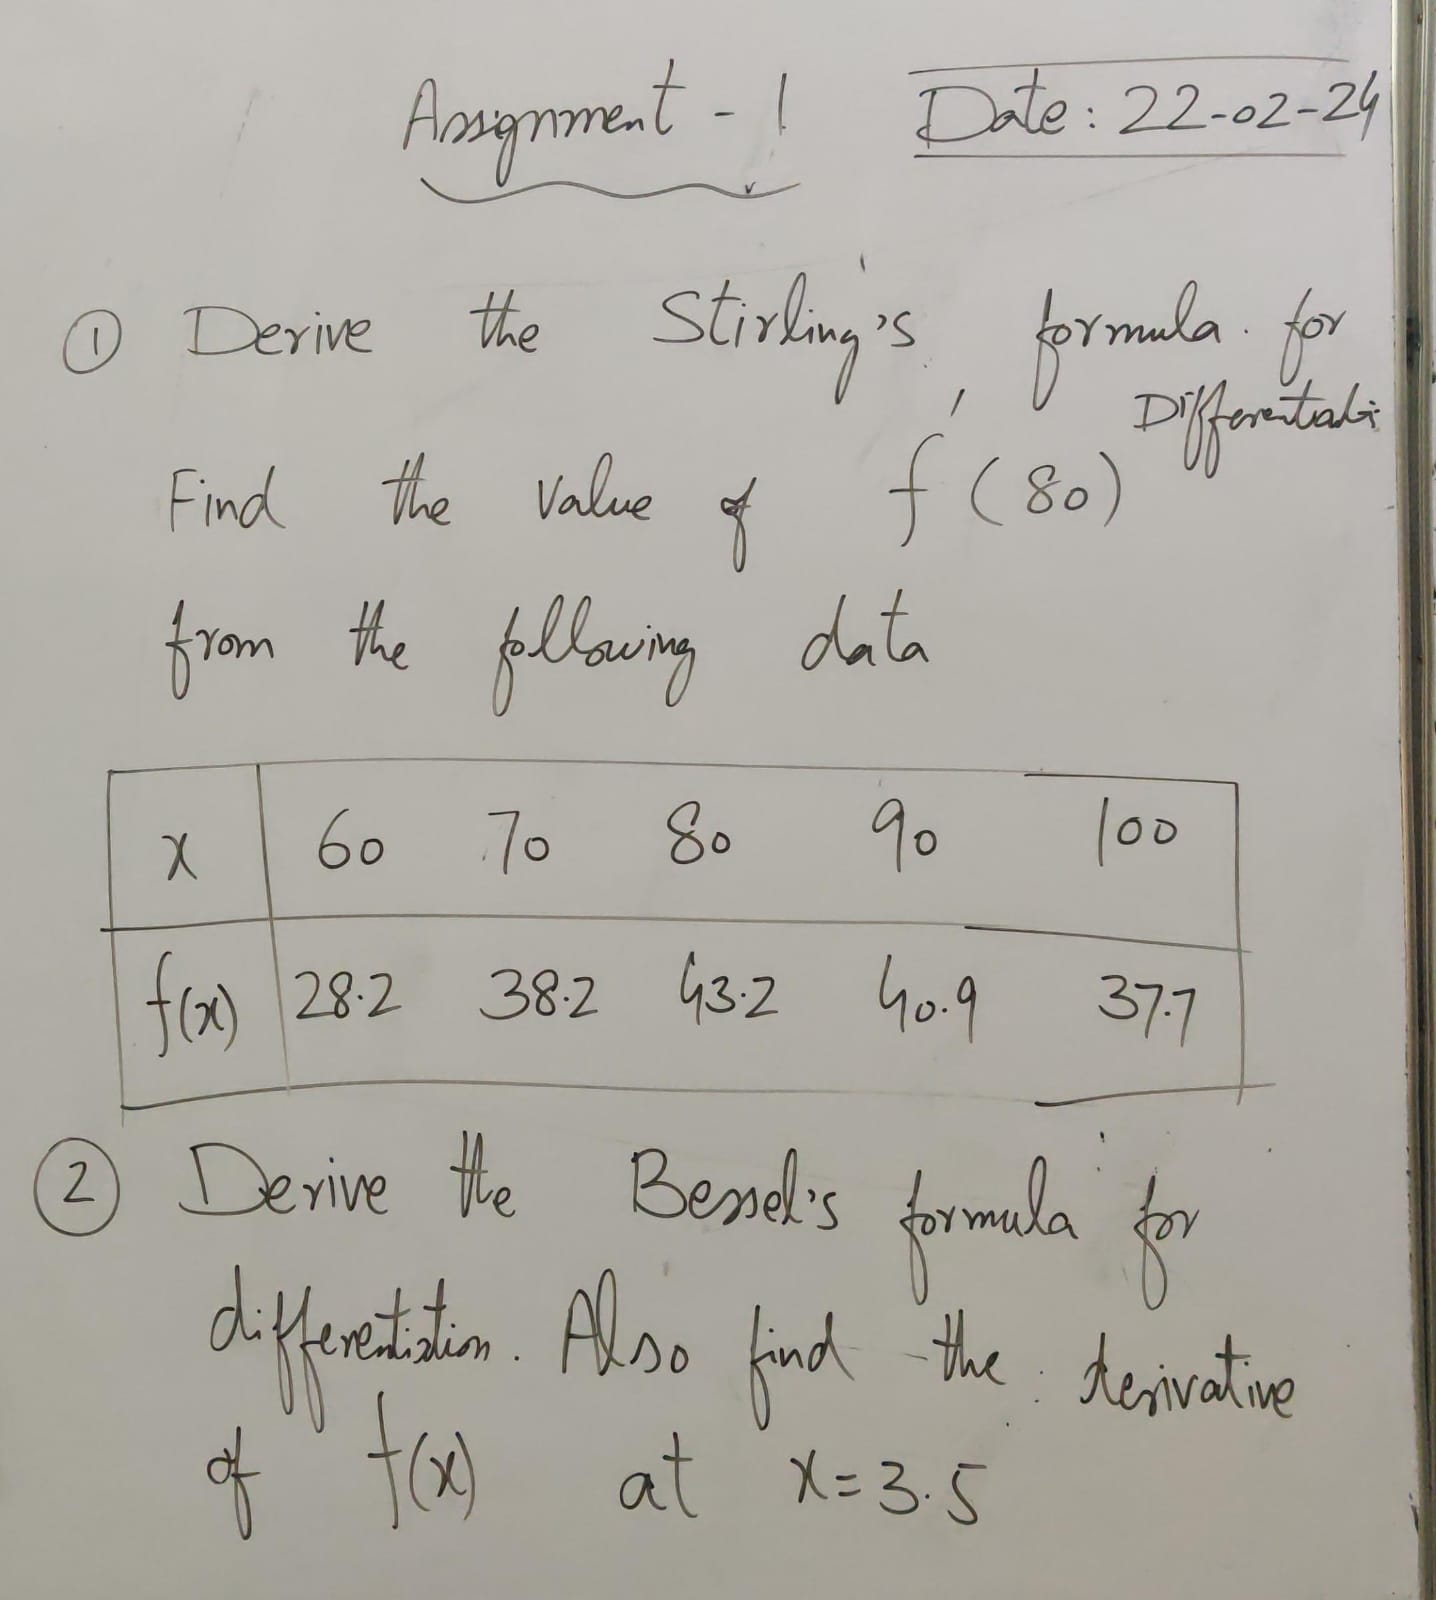 Assignment - 1 Date: 22-02-24
① Derive the Stirling's formula for
Find the value of f'(80)
from the following data
x 60 70 80 90 100
f(x) 28.2 38.2 43.2 40.9 37.7
② Derive the Bessel's formula for
differentiation. Also find the derivative
of f(x) at x=3.5